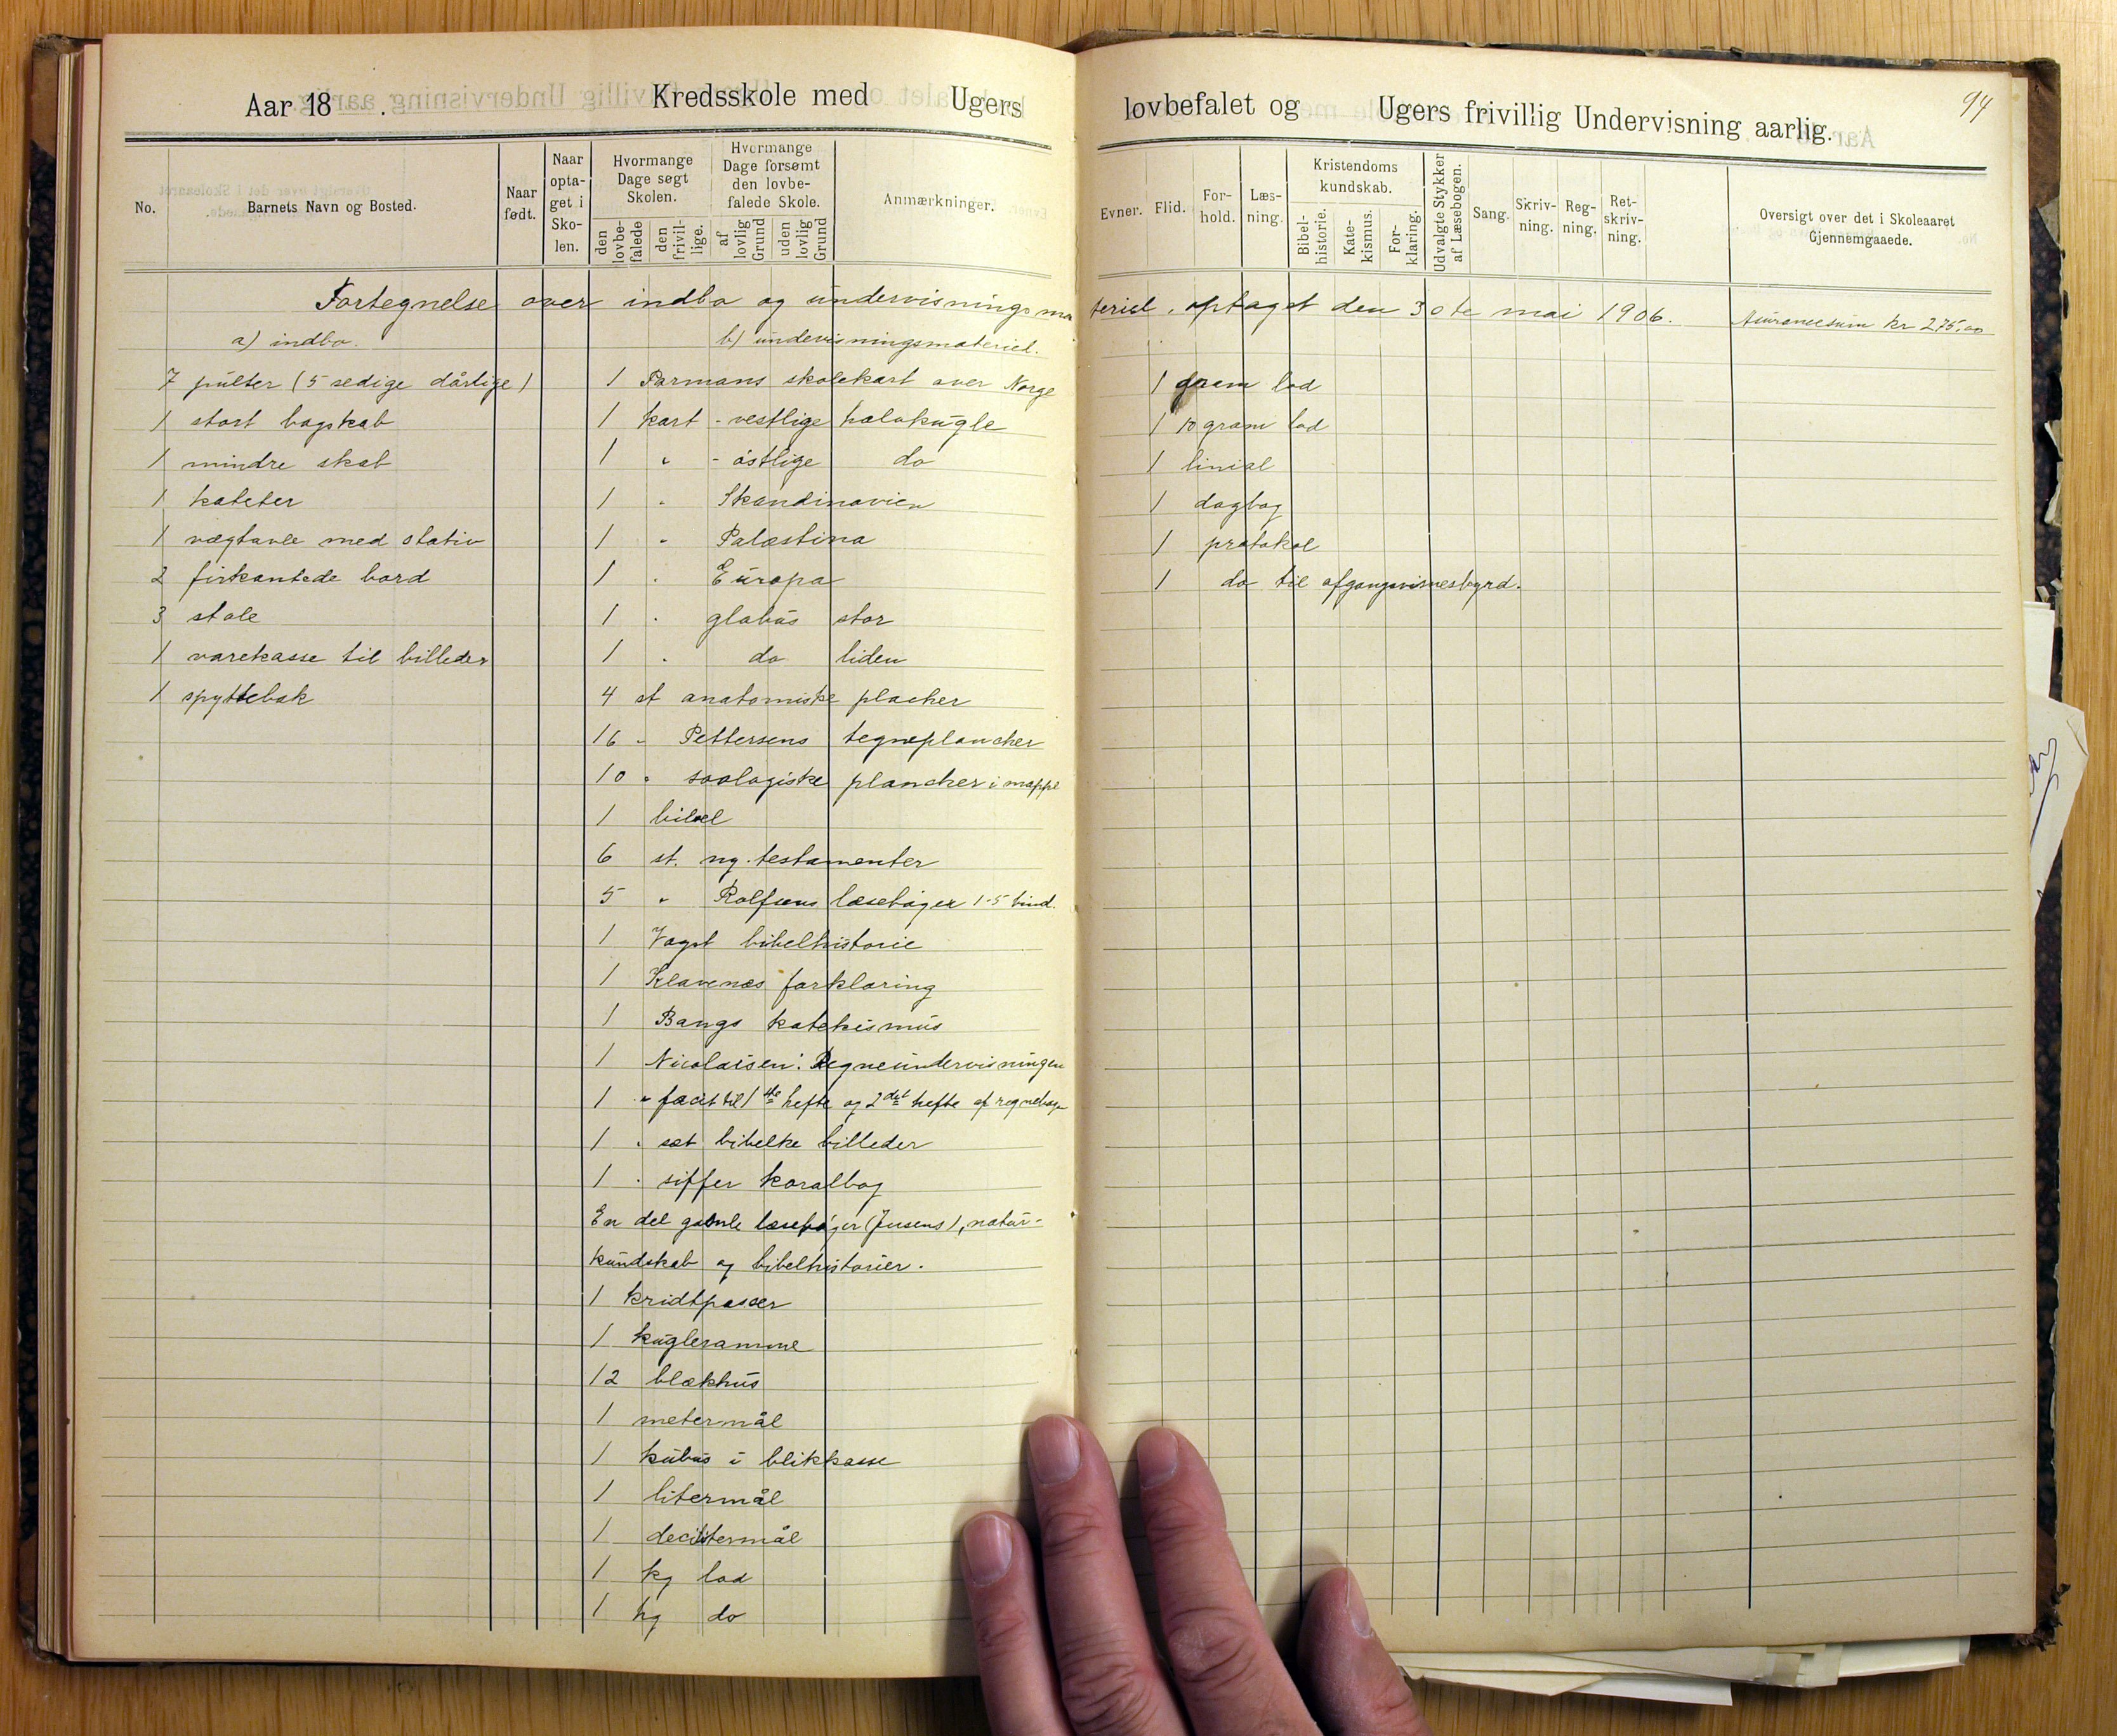 Aar 18 . Kredsskole med Ugers lovbefalet og Ugers frivillig Undervisning aarlig.
94
No.
Barnets Navn og Bosted.
Naar født.
Naar optaget i Skolen.
Hvormange Dage søgt Skolen.
den lovbefalede
den frivillige.
Hvormange Dage forsømt den lovbefalede Skole.
af lovlig Grund
uden lovlig Grund
Anmærkninger.
Evner.
Flid.
Forhold.
Læsning.
Kristendoms kundskab.
Bibelhistorie.
Katekismus.
Forklaring.
Udvalgte Stykker af Læsebogen.
Sang.
Skrivning.
Regning.
Retskrivning.
Oversigt over det i Skoleaaret Gjennemgaaede.
Fortegnelse over indbo og undervisningsmateriel, optaget den 30te mai 1906. Assurancesum kr 275,00
a) indbo.
7 pulter (5 sedige dårlige)
1 stort bogskab
1 mindre skab
1 kateter
1 vægtavle med stativ
2 firkantede bord
3 stole
1 varekasse til billeder
1 spyttebak
b) undervisningsmateriel.
1 Parmans skolekart over Norge
1 kart - vestlige halvkugle
1 " - östlige do
1 " Skandinavien
1 " Palæstina
1 " Europa
1 " globus stor
1 " do liden
4 st anatomiske placher
16 " Pettersens tegneplancher
10 " soologiske plancher i mappe
1 bibel
6 st. ny. testamenter
5 " Rolfsens læsebøger 1-5 bind.
1 Vogt bibelhistorie
1 Klavenes forklaring
1 Bangs katekismus
1 Nicolaisen: Regneundervisningen
1 " facit til 1ste hefte og 2det hefte af regnebogen
1 " sæt bibelke billeder
1 " siffer koralbog
En del gamle læsebøger (Jensens), natur-
kundskab og bibelhistorier.
1 kridtpasser
1 kugleramme
12 blækhus
1 metermål
1 kubus i blikkasse
1 litermål
1 decilitermål
1 kg lod
1 hg do
1 gram lod
1 10 gram lod
1 linial
1 dagbog
1 protokol
1 do til afgangsvisnesbyrd.